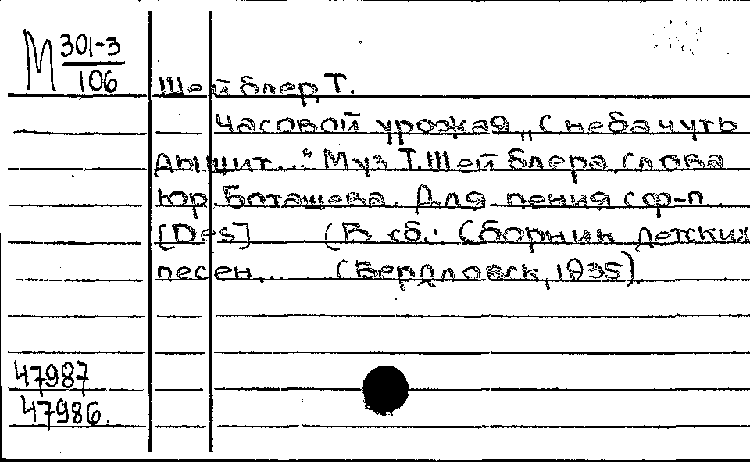 М 301-3
106
Шейблер, Т.
Часовой урожая „С неба чуть
дышит..." Муз. Т. Шейблера, слова
Юр. Боташева. Для пения с ф-п.
[Des] (В сб.: Сборник детских
песен... Свердловск, 1935).
47987
47986.